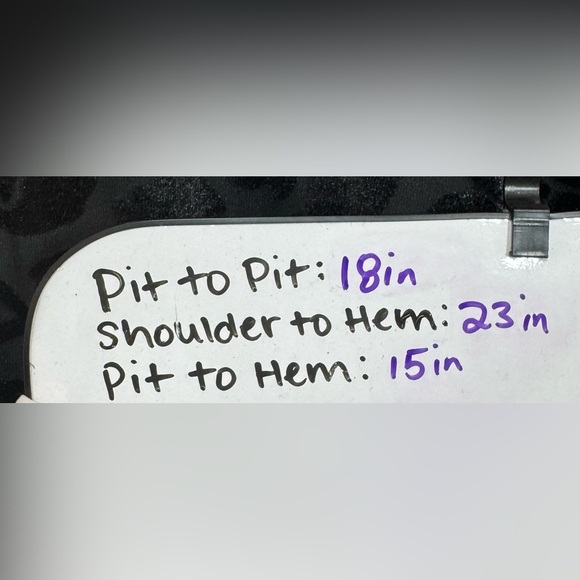 Pit to Pit: 18in
Shoulder to Hem: 23in
Pit to Hem: 15in